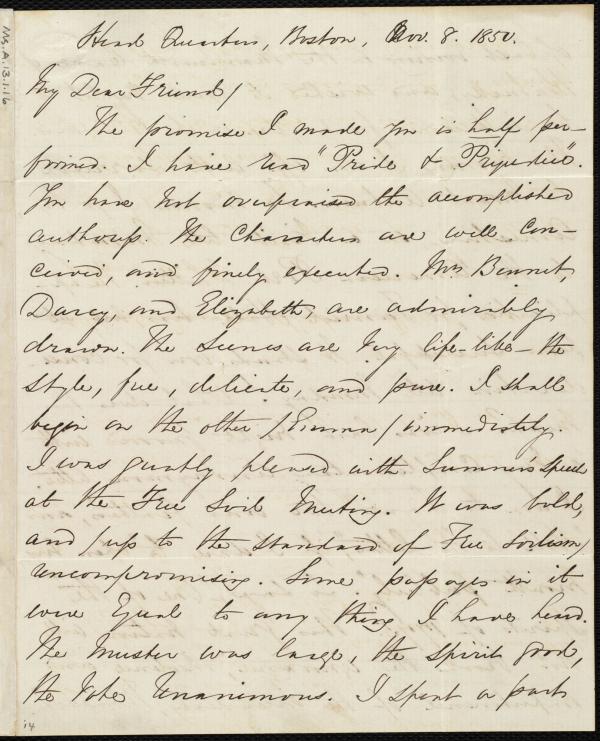 Ms.A.1.3.1.16
Head Quarters, Boston, Nov. 8. 1850.
My Dear Friend/
The promise I made you is half per-
formed. I have read "Pride & Prejudice".
You have not overpraised the accomplished
authoress. The characters are well con-
ceived, and finely executed. Mrs Bennet,
Darcy, and Elizabeth, are admirably
drawn. The scenes are very life-like - the
style, free, delicate, and pure. I shall
begin on the other /Emma/ immediately.
I was greatly pleased with Sumner's speech
at the Free Soil Meeting. It was bold,
and /up to the standard of Free Soilism/
uncompromising. Some passages in it
were equal to any thing I have heard.
The muster was large, the spirit good,
the vote unanimous. I spent a part
14